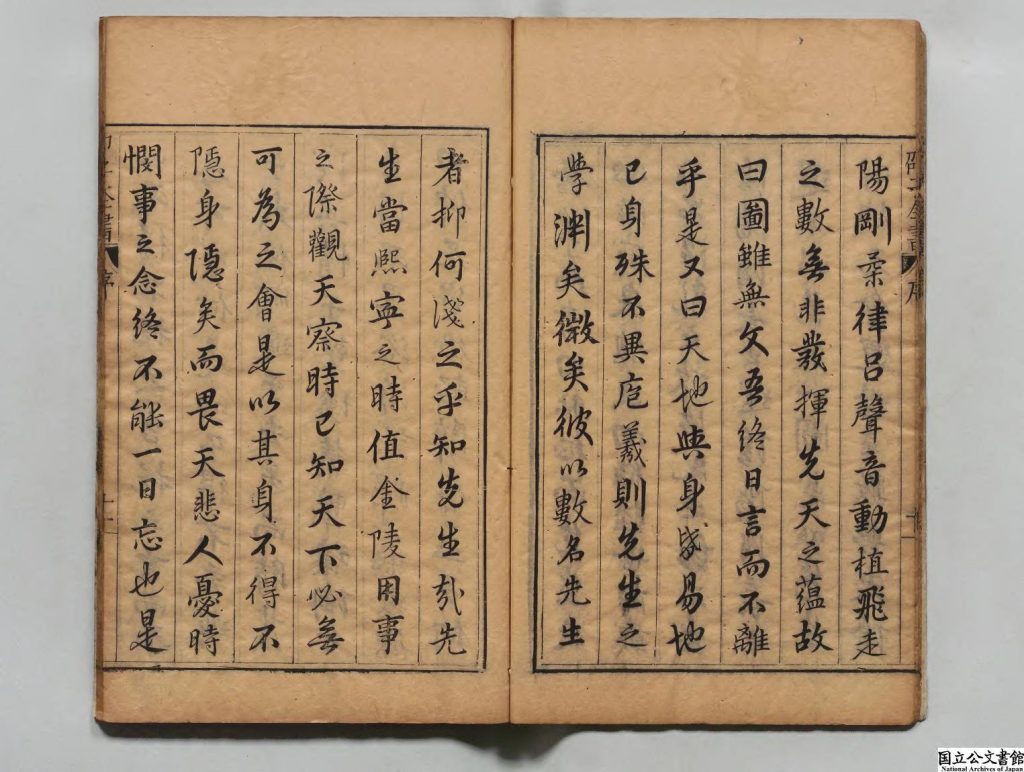 陽剛柔律呂聲音動植飛走
之數無非發揮先天之蘊故
曰圖雖無文吾終日言而不離
乎是又曰天地與身皆易地
已身殊不異庖羲則先生之
學淵矣微矣彼以數名先生
者抑何淺之乎知先生哉先
生當熙寧之時值金陵用事
之際觀天察時已知天下必無
可為之會是以其身不得不
隱身隱矣而畏天悲人憂時
憫事之念終不能一日忘也是
邵子全書 序
国立公文書館
National Archives of Japan